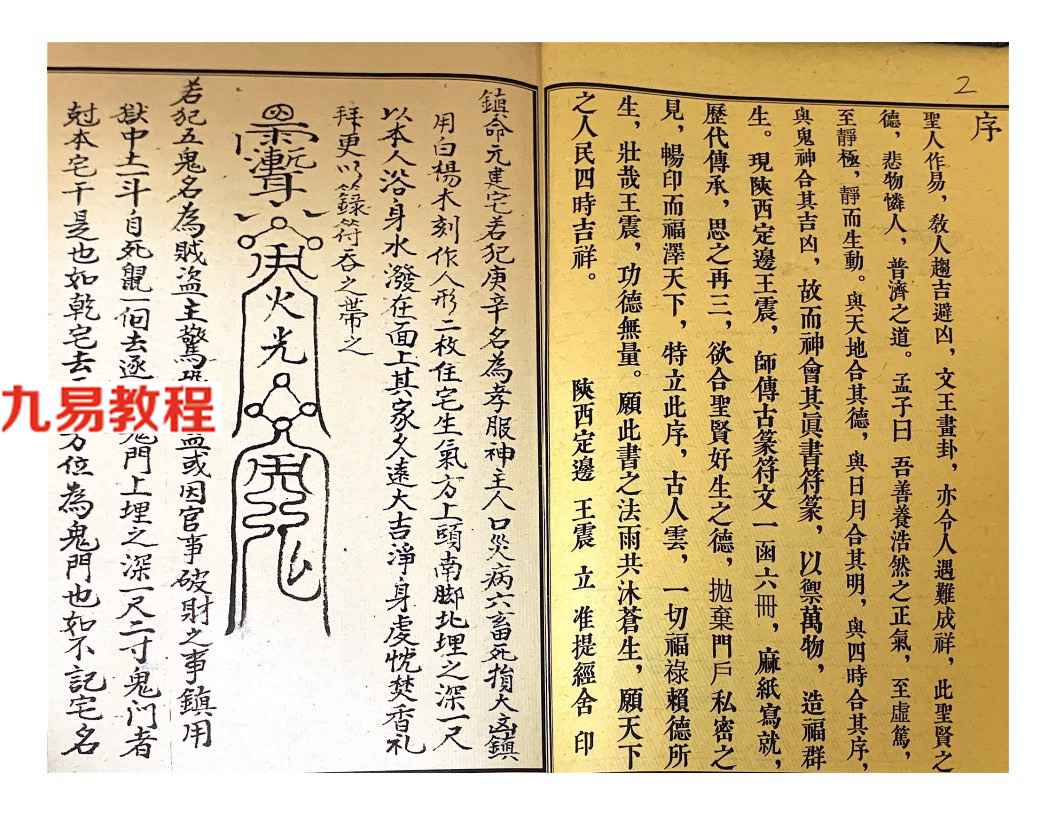 2
序
聖人作易，教人趨吉避凶，文王畫卦，亦令人遇難成祥，此聖賢之
德，悲物憐人，普濟之道。孟子曰 吾善養浩然之正氣，至虛篤，
至靜極，靜而生動。與天地合其德，與日月合其明，與四時合其序，
與鬼神合其吉凶，故而神會其眞書符篆，以禦萬物，造福群
生。現陝西定邊王震，師傳古篆符文一函六冊，麻紙寫就，
歷代傳承，思之再三，欲合聖賢好生之德，拋棄門戶私密之
見，暢印而福澤天下，特立此序，古人雲，一切福祿賴德所
生，壯哉王震，功德無量。願此書之法雨共沐蒼生，願天下
之人民四時吉祥。
陝西定邊 王震 立 准提經舍 印
鎮命元建宅若犯庚辛名為孝服神主人口災病六畜死損大凶鎮
用白楊木刻作人形二枚住宅生氣方上頭南脚北埋之深一尺
以本人浴身水潑在面上其家久遠大吉淨身虔忱焚香礼
拜更以籙符吞之帶之
火光
若犯五鬼名為賊盗主驚 或因官事破財之事鎮用
獄中土一斗自死鼠一個去逐 鬼門上埋之深一尺二寸鬼门者
尅本宅干是也如乾宅去 方位為鬼門也如不記宅名
九易教程